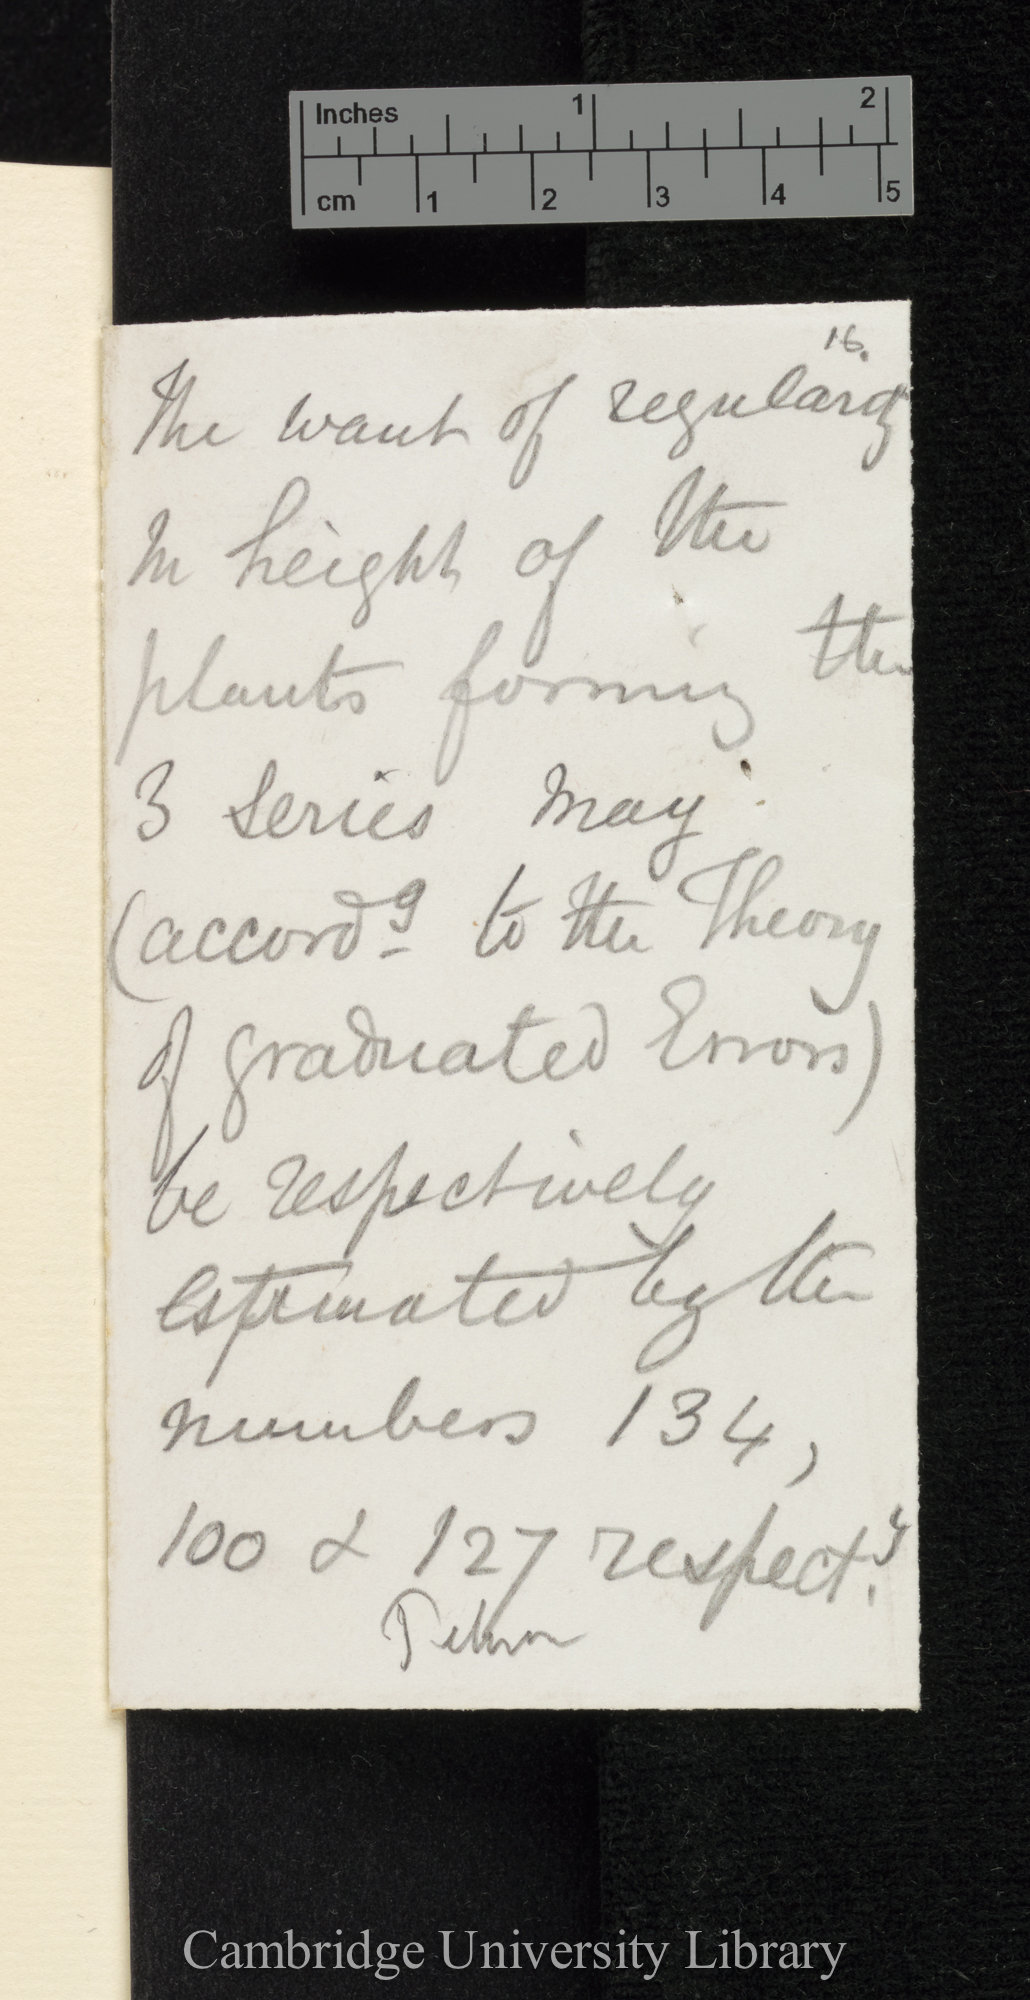 Inches 1 2
cm 1 2 3 4 5
16.
The want of regularity
in height of the
plants forming the
3 series may
(accordg to the Theory
of graduated Errors)
be respectively
estimated by the
numbers 134,
100 & 127 respecty.
Cambridge University Library